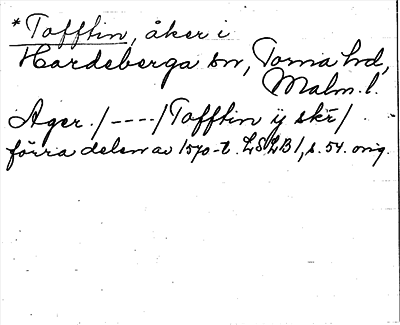 *Tofftin, åker i
Hardeberga sn, Torna hd,
Malm. l.
Ager. /----/ Tofftin ij skr /
förra delen av 1570-t. LSLB 1, s. 54. orig.